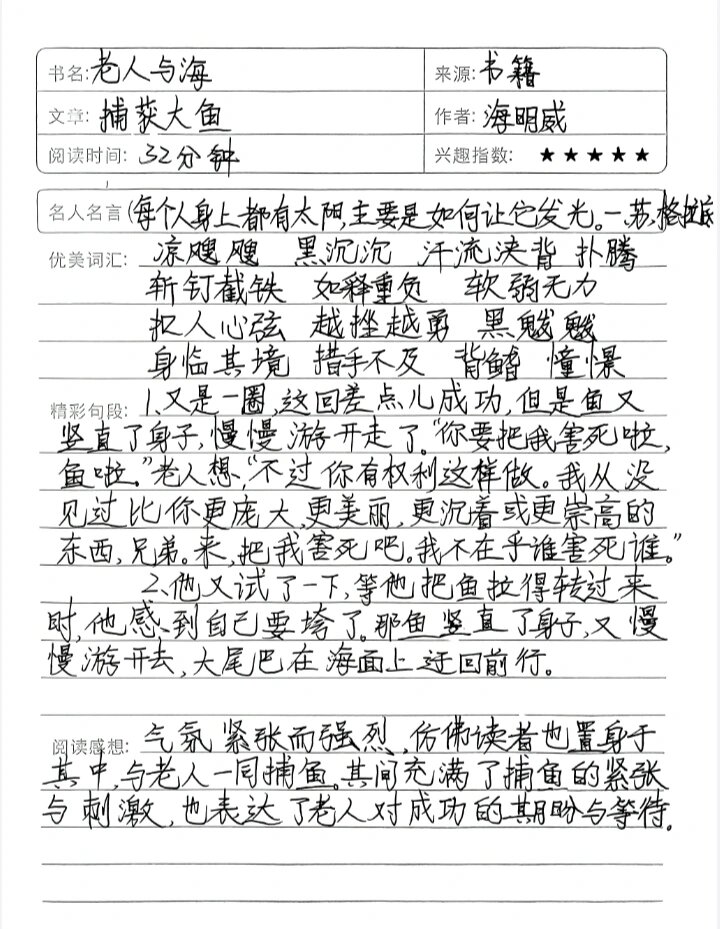 书名:老人与海 来源:书籍
文章:捕获大鱼 作者:海明威
阅读时间:32分钟 兴趣指数:★★★★★
名人名言(每个人身上都有太阳,主要是如何让它发光。—苏格拉底
优美词汇:凉飕飕 黑沉沉 汗流浃背 扑腾
斩钉截铁 如释重负 软弱无力
扣人心弦 越挫越勇 黑魆魆
身临其境 措手不及 背鳍 憧憬
精彩句段:1、又是一圈,这回差点儿成功,但是鱼又
竖直了身子,慢慢游开走了。“你要把我害死啦,
鱼啦。”老人想,“不过你有权利这样做。我从没
见过比你更庞大,更美丽,更沉着或更崇高的
东西,兄弟。来,把我害死吧。我不在乎谁害死谁。”
2、他又试了一下,等他把鱼拉得转过来
时,他感到自己要垮了。那鱼竖直了身子,又慢
慢游开去,大尾巴在海面上迂回前行。
阅读感想:气氛紧张而强烈,仿佛读者也置身于
其中,与老人一同捕鱼。其间充满了捕鱼的紧张
与刺激,也表达了老人对成功的期盼与等待。